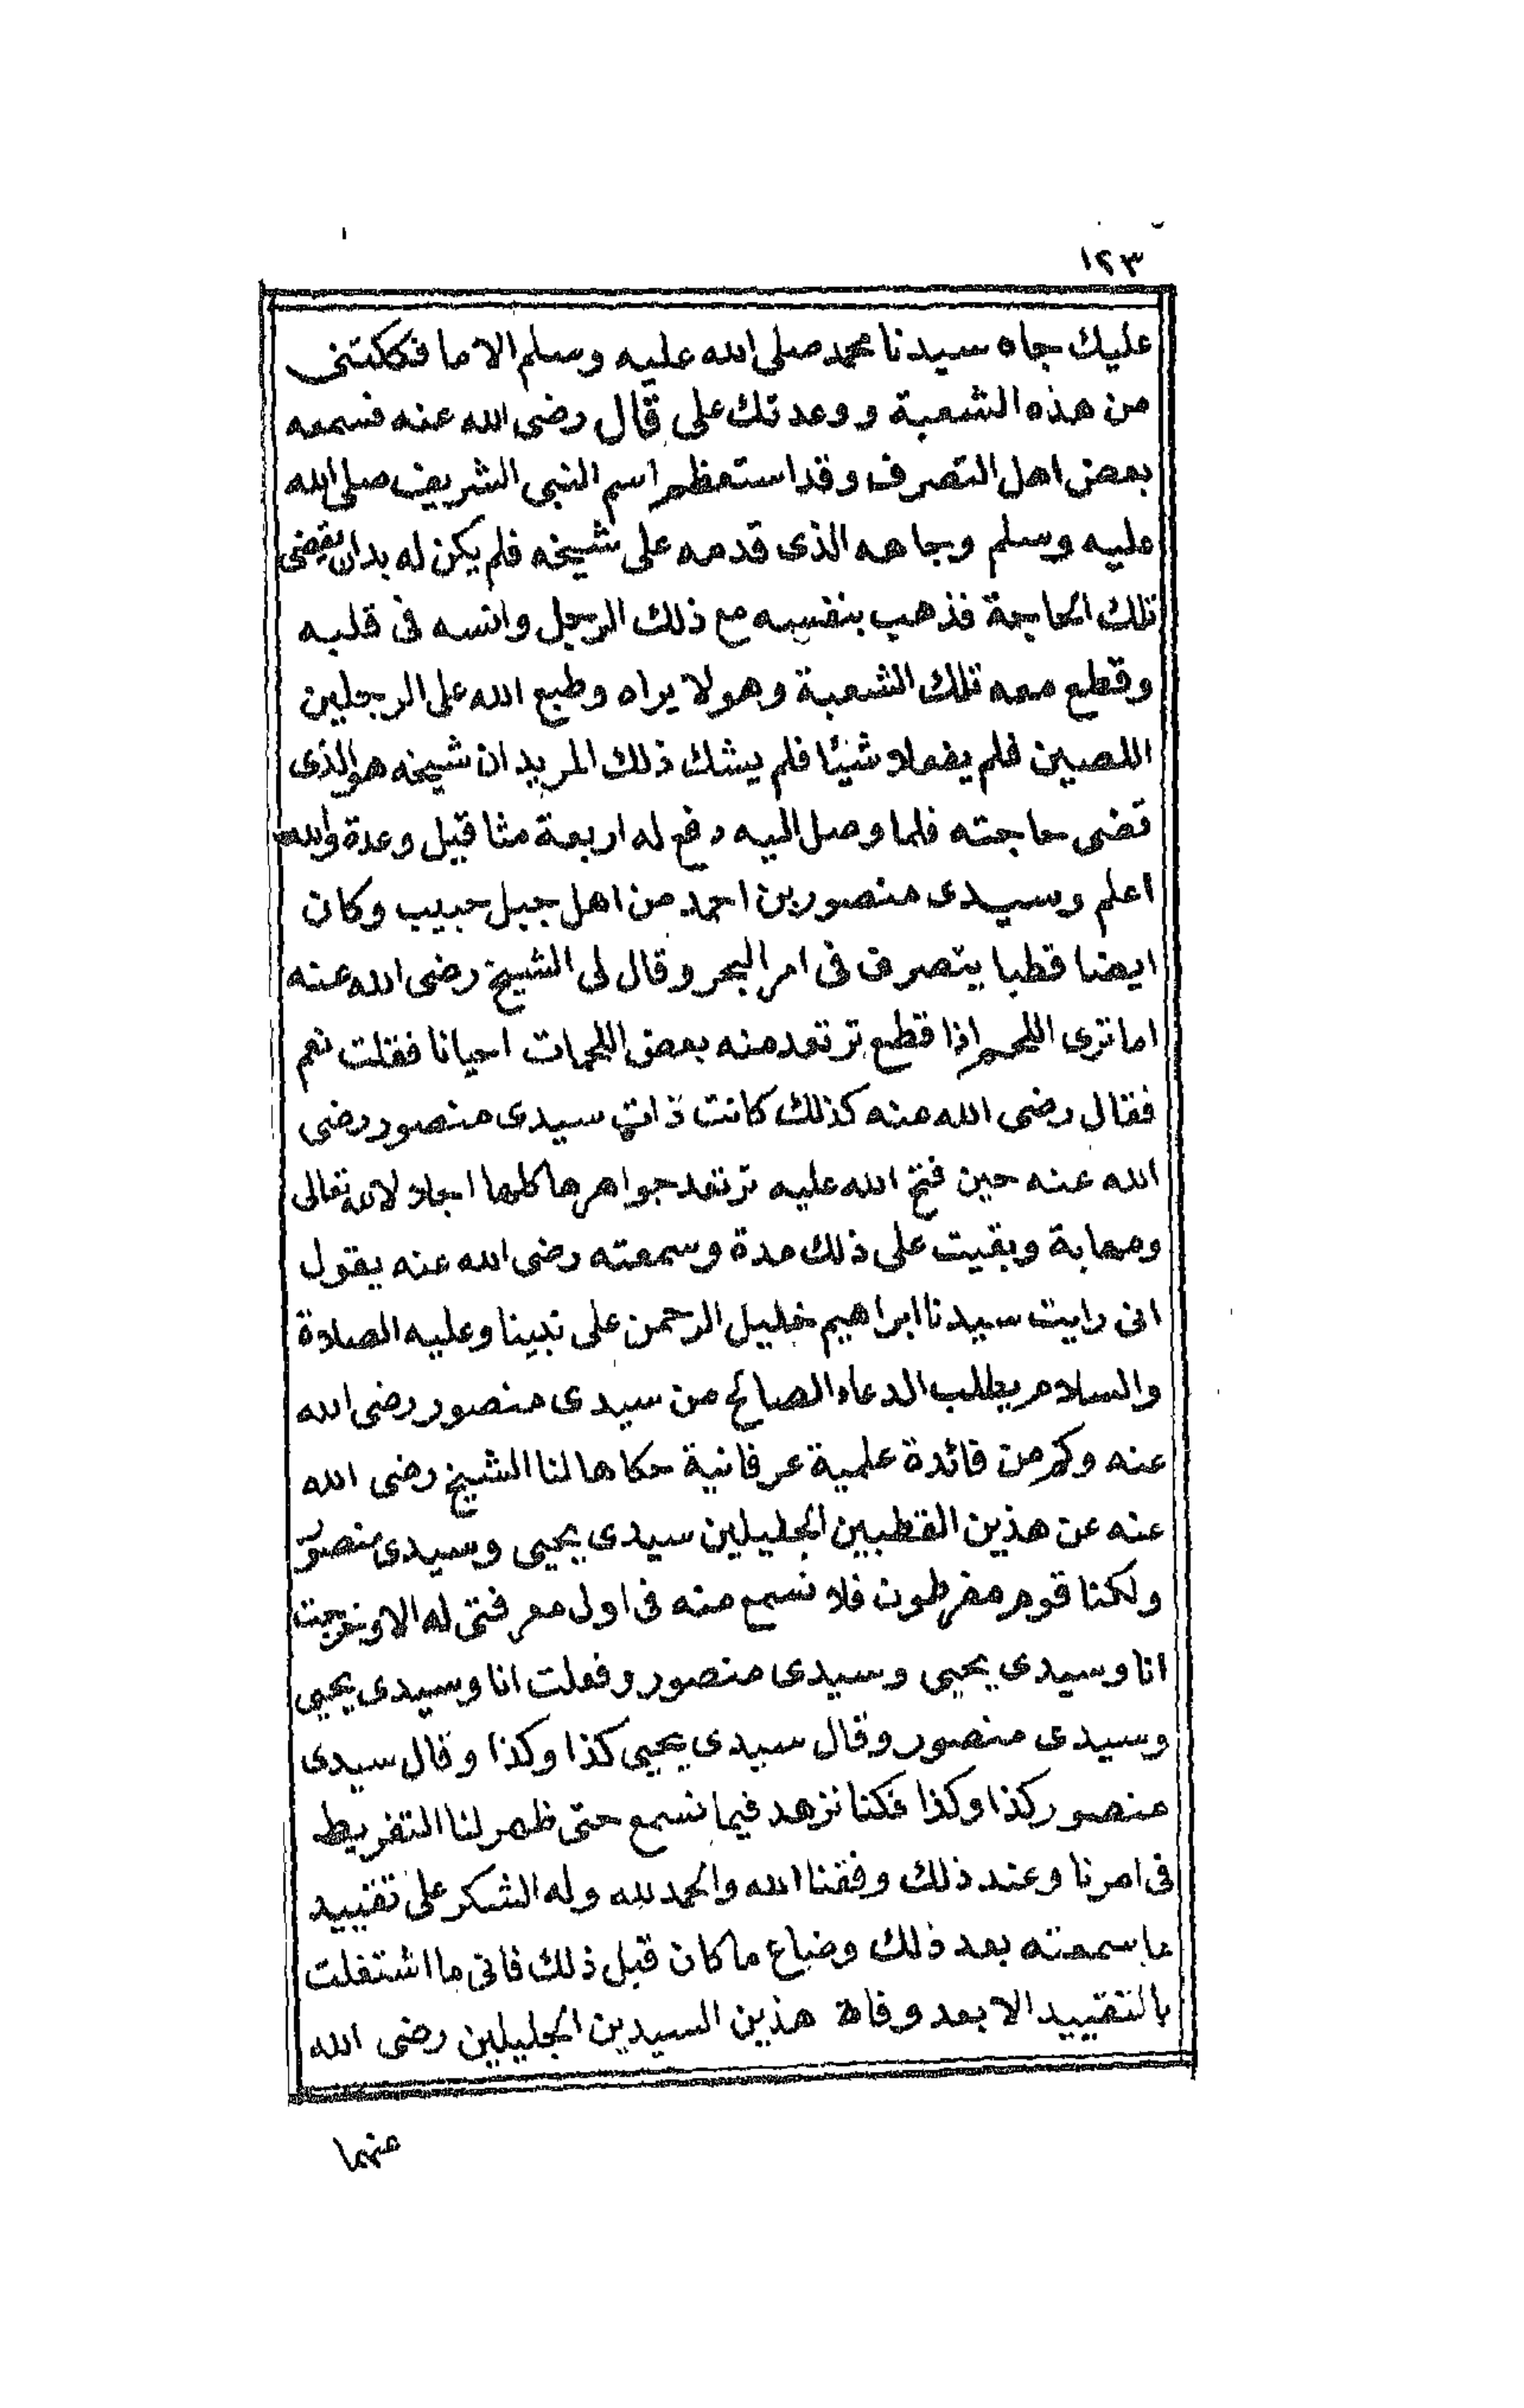 ١٢٣
عليك جاه سيدنا محمد صلى الله عليه وسلم الا ما فككتنى
من هذه الشعبة ووعدتك على قال رضى الله عنه فسمعه
بعض اهل التصرف وقد استعظم اسم النبى الشريف صلى الله
عليه وسلم وجاهه الذى قدمه على شيخه فلم يكن له بد ان يقضى
تلك الحاجة فذهب بنفسه مع ذلك الرجل وانسه فى قلبه
وقطع معه تلك الشعبة وهو لا يراه وطبع الله على الرجلين
اللصين فلم يفعلا شيئا فلم يشك ذلك المريد ان شيخه هو الذى
قضى حاجته فلما وصل اليه دفع له اربعة مثاقيل وعدة والله
اعلم وسيدى منصور بن احمد من اهل جبل حبيب وكان
ايضا قطبا يتصرف فى امر البحر وقال لى الشيخ رضى الله عنه
اما ترى اللحم اذا قطع ترتعد منه بعض اللحمات احيانا فقلت نعم
فقال رضى الله عنه كذلك كانت ذات سيدى منصور رضى
الله عنه حين فتح الله عليه ترتعد جواهرها كلها اجلالا لله تعالى
ومهابة وبقيت على ذلك مدة وسمعته رضى الله عنه يقول
انى رايت سيدنا ابراهيم خليل الرحمن على نبينا وعليه الصلاة
والسلام يطلب الدعاء الصالح من سيدى منصور رضى الله
عنه وكم من فائدة علمية عرفانية حكاها لنا الشيخ رضى الله
عنه عن هذين القطبين الجليلين سيدى يحيى وسيدى منصور
ولكنا قوم مفرطون فلا نسمع منه فى اول معرفتى له الا وخرجت
انا وسيدى يحيى وسيدى منصور وفعلت انا وسيدى يحيى
وسيدى منصور وقال سيدى يحيى كذا وكذا وقال سيدى
منصور كذا وكذا فكنا نزهد فيما نسمع حتى ظهر لنا التفريط
فى امرنا وعند ذلك وفقنا الله والحمد لله وله الشكر على تقييد
ما سمعته بعد ذلك وضاع ما كان قبل ذلك فانى ما اشتغلت
بالتقييد الا بعد وفاة هذين السيدين الجليلين رضى الله
عنهما